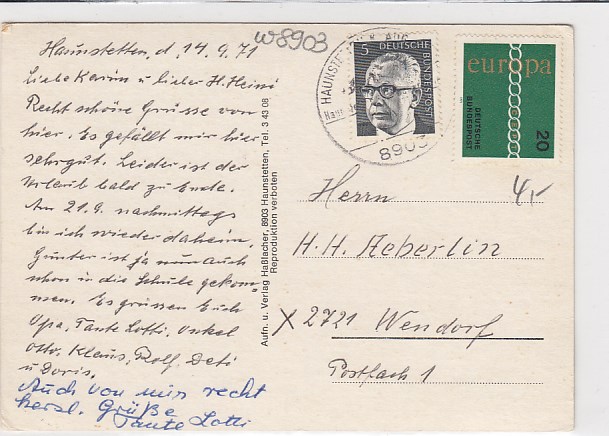 w8903
Haunstetten, d. 14.9.71
Liebe Karin u lieber H. Heini
Recht schöne Grüsse von
hier. Es gefällt mir hier
sehr gut. Leider ist der
Urlaub bald zu Ende.
Am 21.9. nachmittags
bin ich wieder daheim,
Günter ist ja nun auch
schon in die Schule gekom-
men. Es grüssen Euch
Opa, Tante Lotti, Onkel
Otto, Klaus, Rolf, Deti
u Doris.
Auch von mir recht
herzl. Grüße
Tante Lotti
Aufn. u. Verlag Haßlacher, 8903 Haunstetten, Tel. 3 43 06
Reproduktion verboten
HAUNSTE
AUG
8903
5
DEUTSCHE BUNDESPOST
europa
DEUTSCHE
BUNDESPOST
20
4,-
Herrn
H. H. Aeberlin
X 2721 Wendorf
Postfach 1